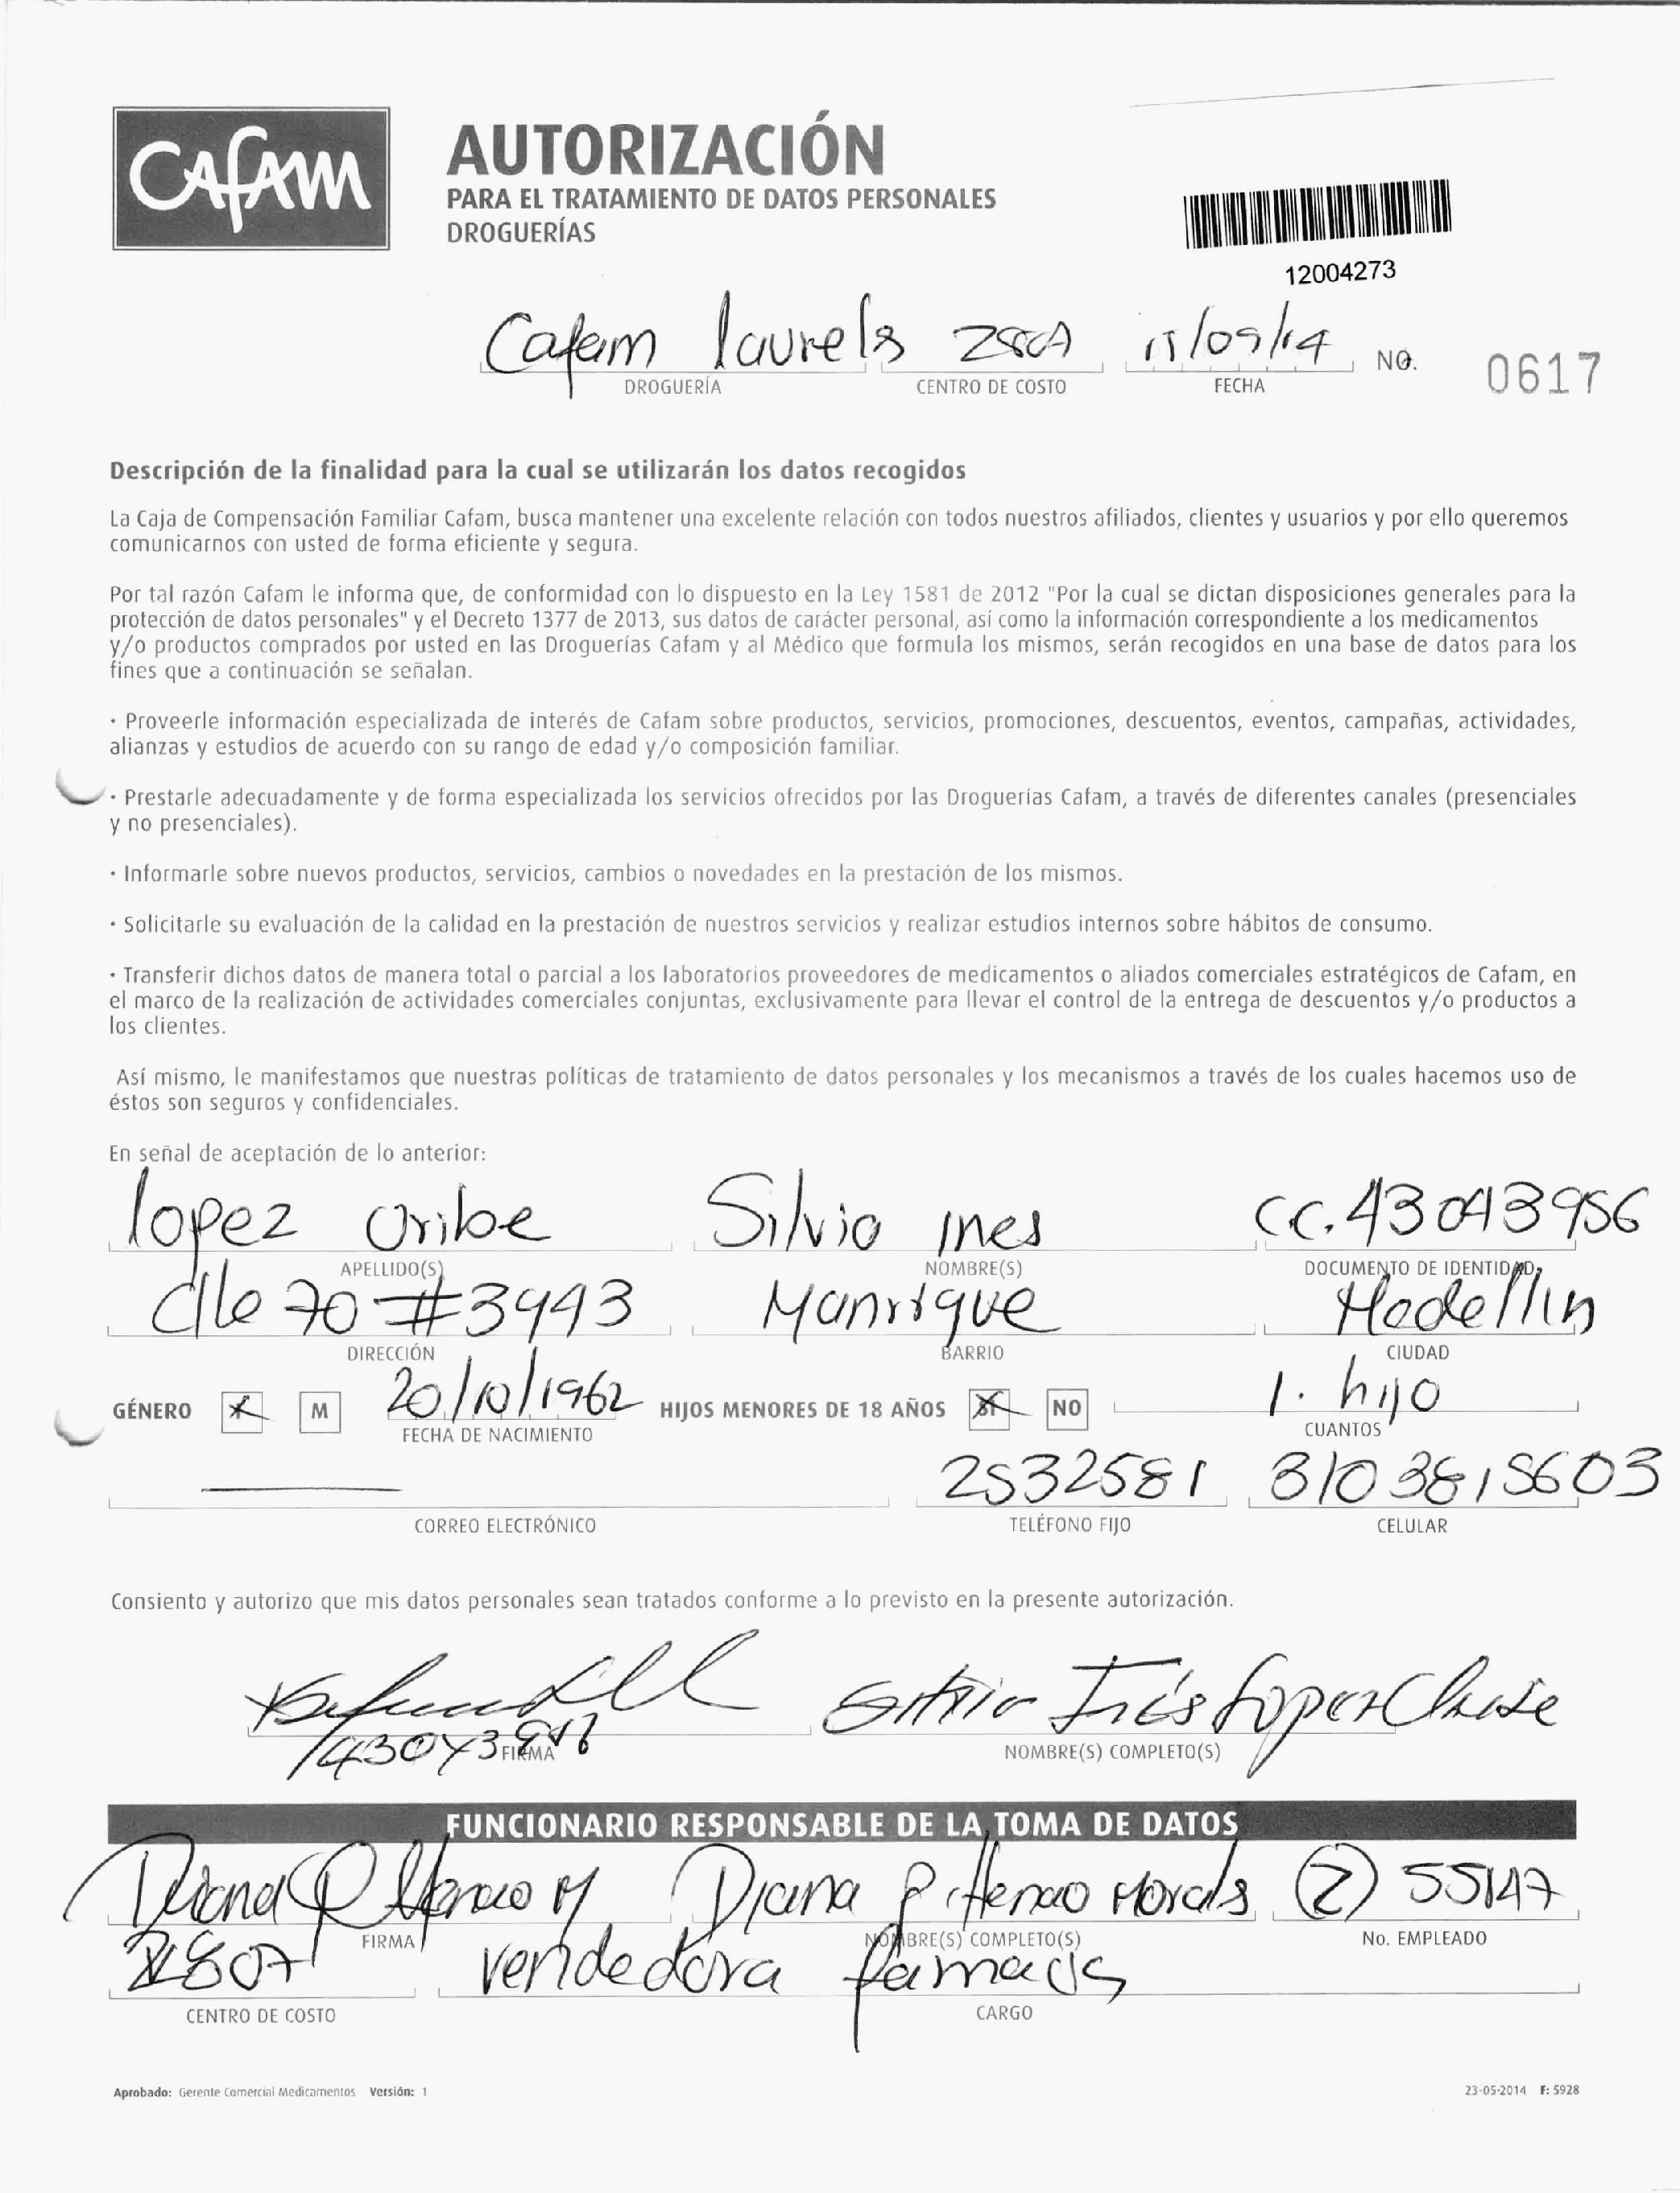 Cafam
AUTORIZACIÓN
PARA EL TRATAMIENTO DE DATOS PERSONALES
DROGUERÍAS
12004273
Cafam laureles 2807 11/09/14 NO. 0617
DROGUERÍA CENTRO DE COSTO FECHA
Descripción de la finalidad para la cual se utilizarán los datos recogidos
La Caja de Compensación Familiar Cafam, busca mantener una excelente relación con todos nuestros afiliados, clientes y usuarios y por ello queremos
comunicarnos con usted de forma eficiente y segura.
Por tal razón Cafam le informa que, de conformidad con lo dispuesto en la Ley 1581 de 2012 "Por la cual se dictan disposiciones generales para la
protección de datos personales" y el Decreto 1377 de 2013, sus datos de carácter personal, así como la información correspondiente a los medicamentos
y/o productos comprados por usted en las Droguerías Cafam y al Médico que formula los mismos, serán recogidos en una base de datos para los
fines que a continuación se señalan.
· Proveerle información especializada de interés de Cafam sobre productos, servicios, promociones, descuentos, eventos, campañas, actividades,
alianzas y estudios de acuerdo con su rango de edad y/o composición familiar.
· Prestarle adecuadamente y de forma especializada los servicios ofrecidos por las Droguerías Cafam, a través de diferentes canales (presenciales
y no presenciales).
· Informarle sobre nuevos productos, servicios, cambios o novedades en la prestación de los mismos.
· Solicitarle su evaluación de la calidad en la prestación de nuestros servicios y realizar estudios internos sobre hábitos de consumo.
· Transferir dichos datos de manera total o parcial a los laboratorios proveedores de medicamentos o aliados comerciales estratégicos de Cafam, en
el marco de la realización de actividades comerciales conjuntas, exclusivamente para llevar el control de la entrega de descuentos y/o productos a
los clientes.
Así mismo, le manifestamos que nuestras políticas de tratamiento de datos personales y los mecanismos a través de los cuales hacemos uso de
éstos son seguros y confidenciales.
En señal de aceptación de lo anterior:
lopez Uribe Silvia Ines cc. 43043956
APELLIDO(S) NOMBRE(S) DOCUMENTO DE IDENTIDAD
Clle 70 #3943 Manrique Medellin
DIRECCIÓN BARRIO CIUDAD
GÉNERO M 20/10/1962 HIJOS MENORES DE 18 AÑOS SI NO 1. hijo
FECHA DE NACIMIENTO CUANTOS
2532581 3103815603
CORREO ELECTRÓNICO TELÉFONO FIJO CELULAR
Consiento y autorizo que mis datos personales sean tratados conforme a lo previsto en la presente autorización.
Inés
FIRMA NOMBRE(S) COMPLETO(S)
FUNCIONARIO RESPONSABLE DE LA TOMA DE DATOS
Diana P Henao M Diana P Henao Morals (2) 55147
FIRMA NOMBRE(S) COMPLETO(S) No. EMPLEADO
2807 vendedora
CENTRO DE COSTO CARGO
Aprobado: Gerente Comercial Medicamentos Versión: 1 23-05-2014 F: 5928